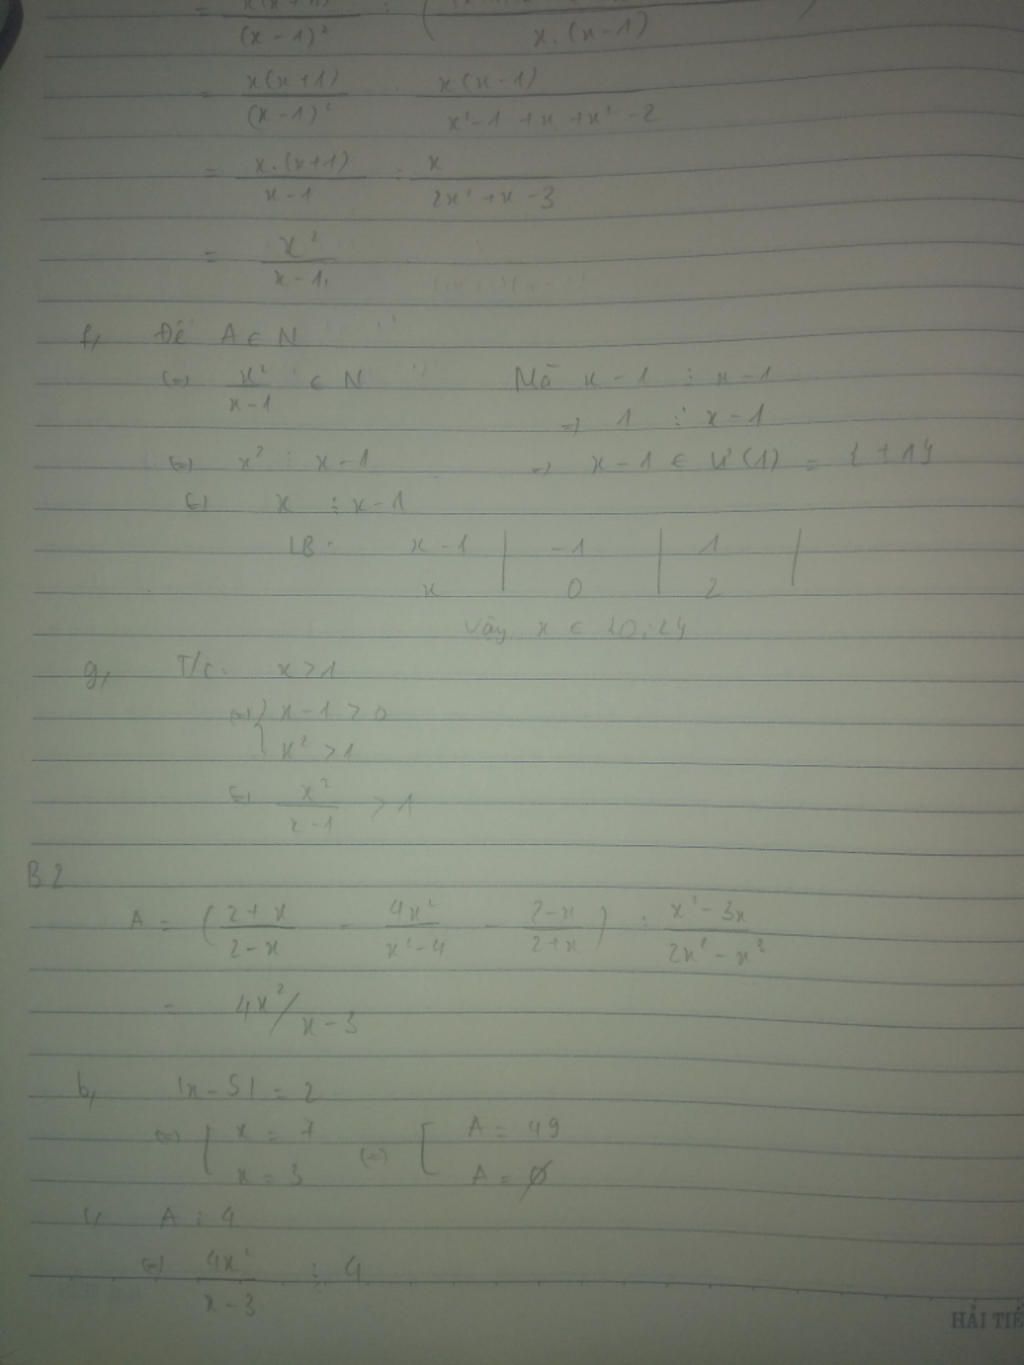 = x(x+1) / (x-1)² : ( / x.(x-1) )
= x(x+1) / (x-1)² . x(x-1) / x²-1+x+x²-2
= x.(x+1) / x-1 : x / 2x²+x-3
= x² / x-1
f, Để A ∈ N
(=) x² / x-1 ∈ N Mà x-1 ⋮ x-1
=) 1 ⋮ x-1
(=) x² ⋮ x-1 =) x-1 ∈ Ư(1) = {±1}
(=) x ⋮ x-1
LB: x-1 | -1 | 1 |
x | 0 | 2 |
Vậy x ∈ {0;2}
g, T/c. x>1
(=) { x-1 > 0
x² > 1
(=) x² / x-1 > 1
B2
A = ( 2+x / 2-x - 4x² / x²-4 - 2-x / 2+x ) : x²-3x / 2x²-x³
= 4x²/x-3
b, |x-5| = 2
(=) [ x = 7 (=) [ A = 49
x = 3 A = ∅
A ⋮ 4
(=) 4x² / x-3 ⋮ 4
HẢI TIẾ